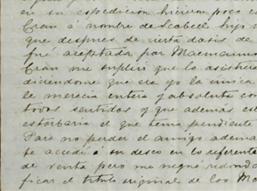 en su espedicion hicieron poca
Crau á nombre de Scabell. hijo
que despues de cierta dosis de
fué aceptada por Macmannus
Crau me suplicó que lo asistiera
diciendome que era yo la única
le merecia entera y absoluta con
todos sentidos y que además est
estorbaria el que tenia pendiente
Para no perder el amigo adema
te accedí á su deseo en lo referente
de venta pero me negué reconoci
ficar el título original de los Ma